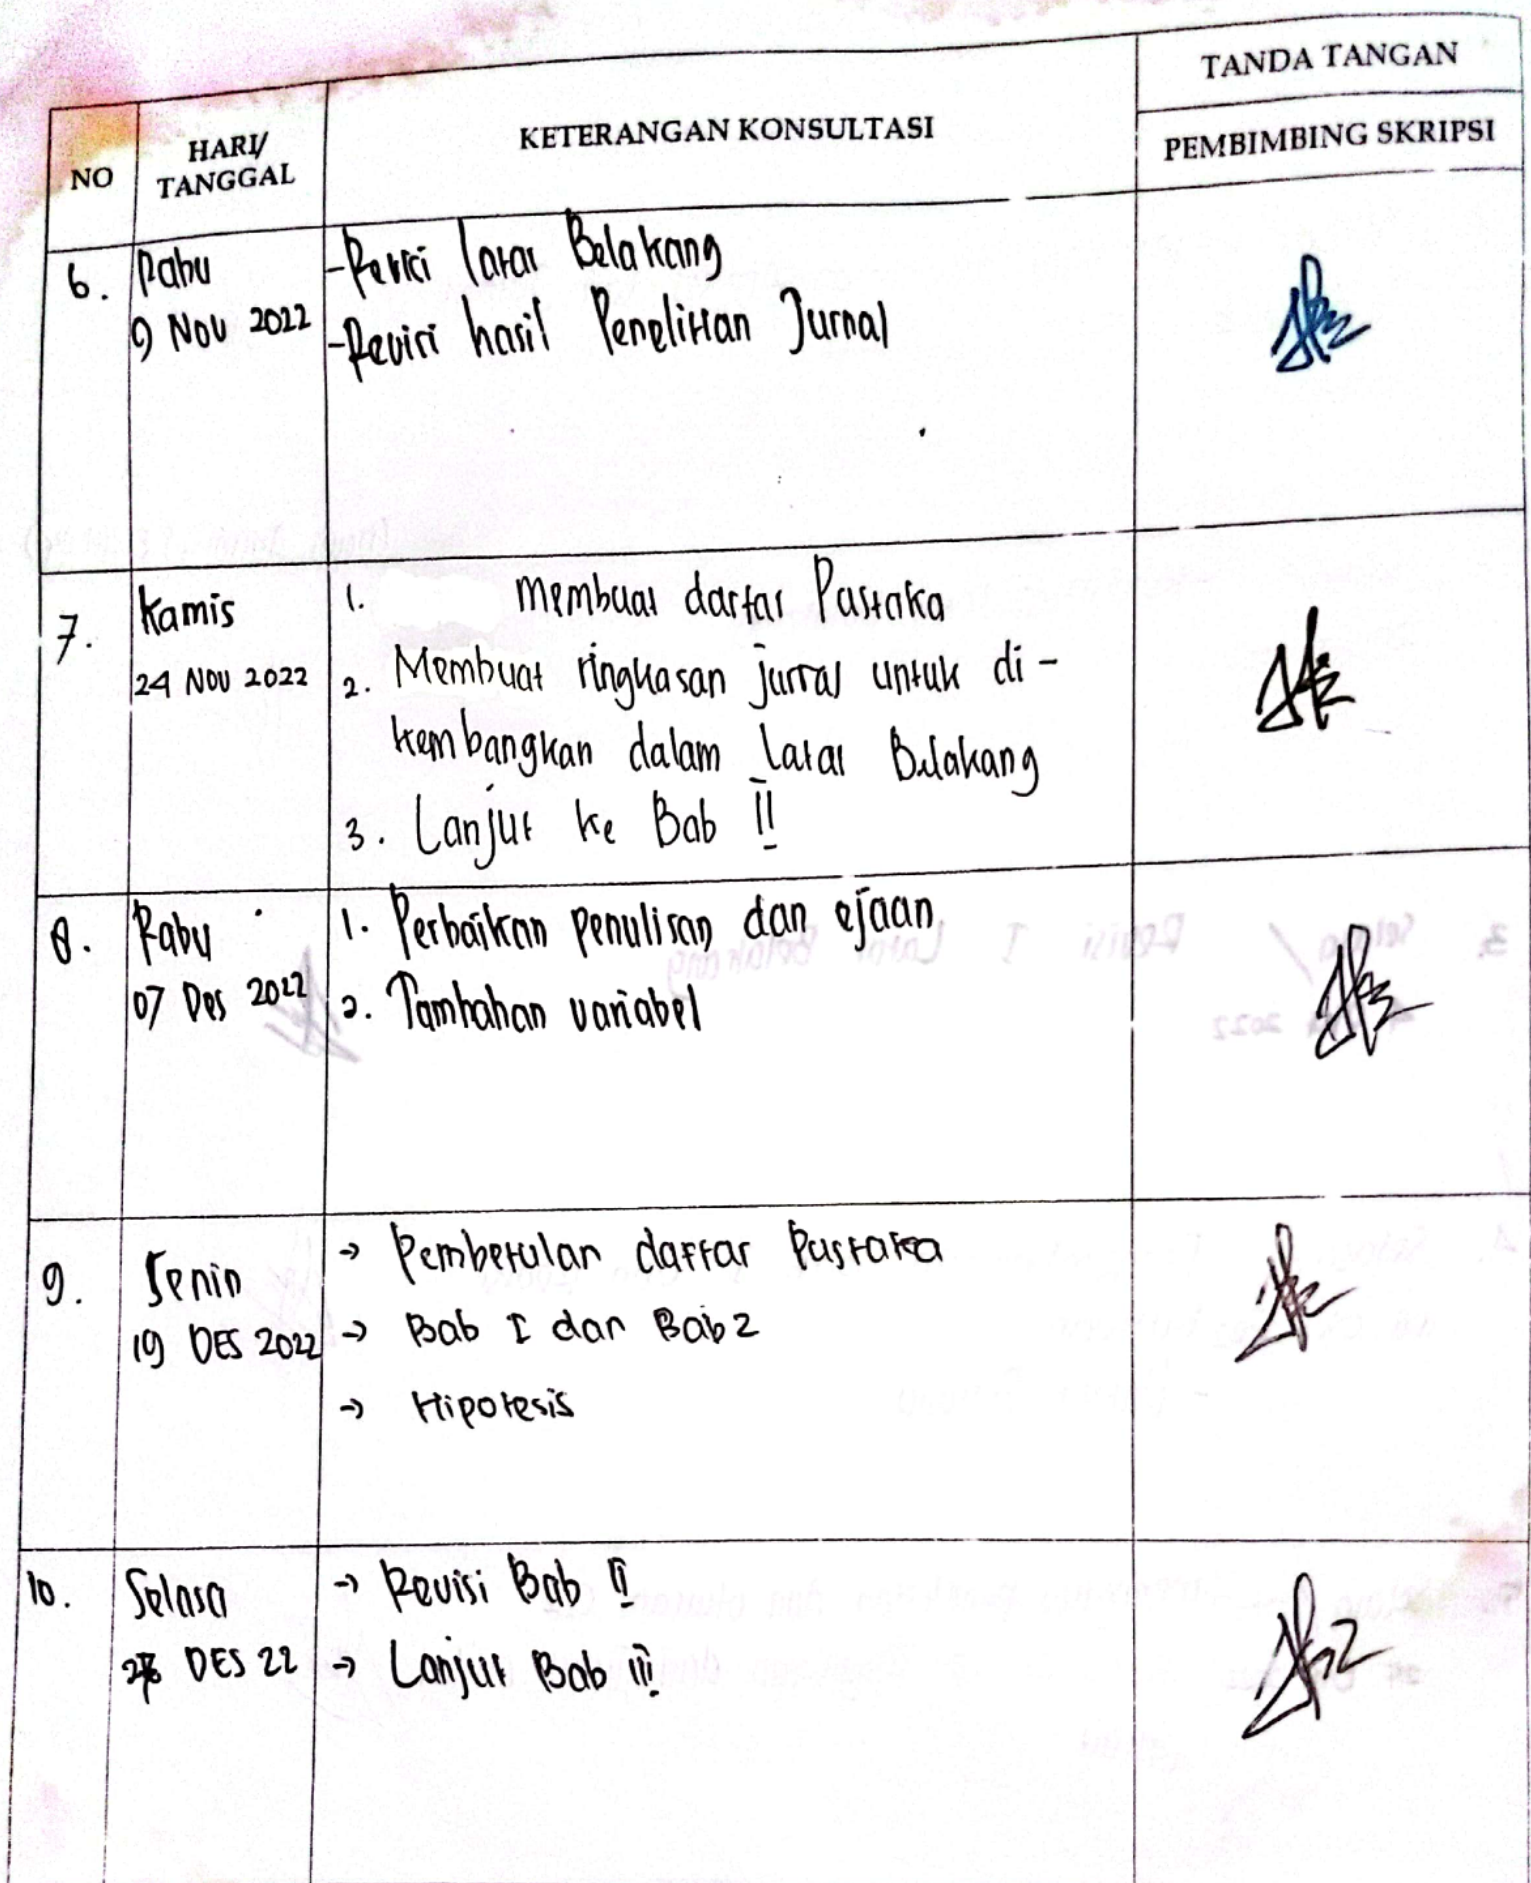 NO
HARI/
TANGGAL
KETERANGAN KONSULTASI
TANDA TANGAN
PEMBIMBING SKRIPSI
6.
Rabu
9 Nov 2022
- latar Belakang
-Revisi hasil Penelitian Jurnal
7.
Kamis
24 Nov 2022
1. Membuat daftar Pustaka
2. Membuat ringkasan jurnal untuk di-
kembangkan dalam Latar Belakang
3. Lanjut ke Bab II
8.
Rabu
07 Des 2022
1. Perbaikan penulisan dan ejaan
2. Tambahan variabel
9.
Senin
19 DES 2022
→ Pembetulan daftar Pustaka
→ Bab I dan Bab 2
→ Hipotesis
10.
Selasa
DES 22
→ Revisi Bab II
→ Lanjut Bab III